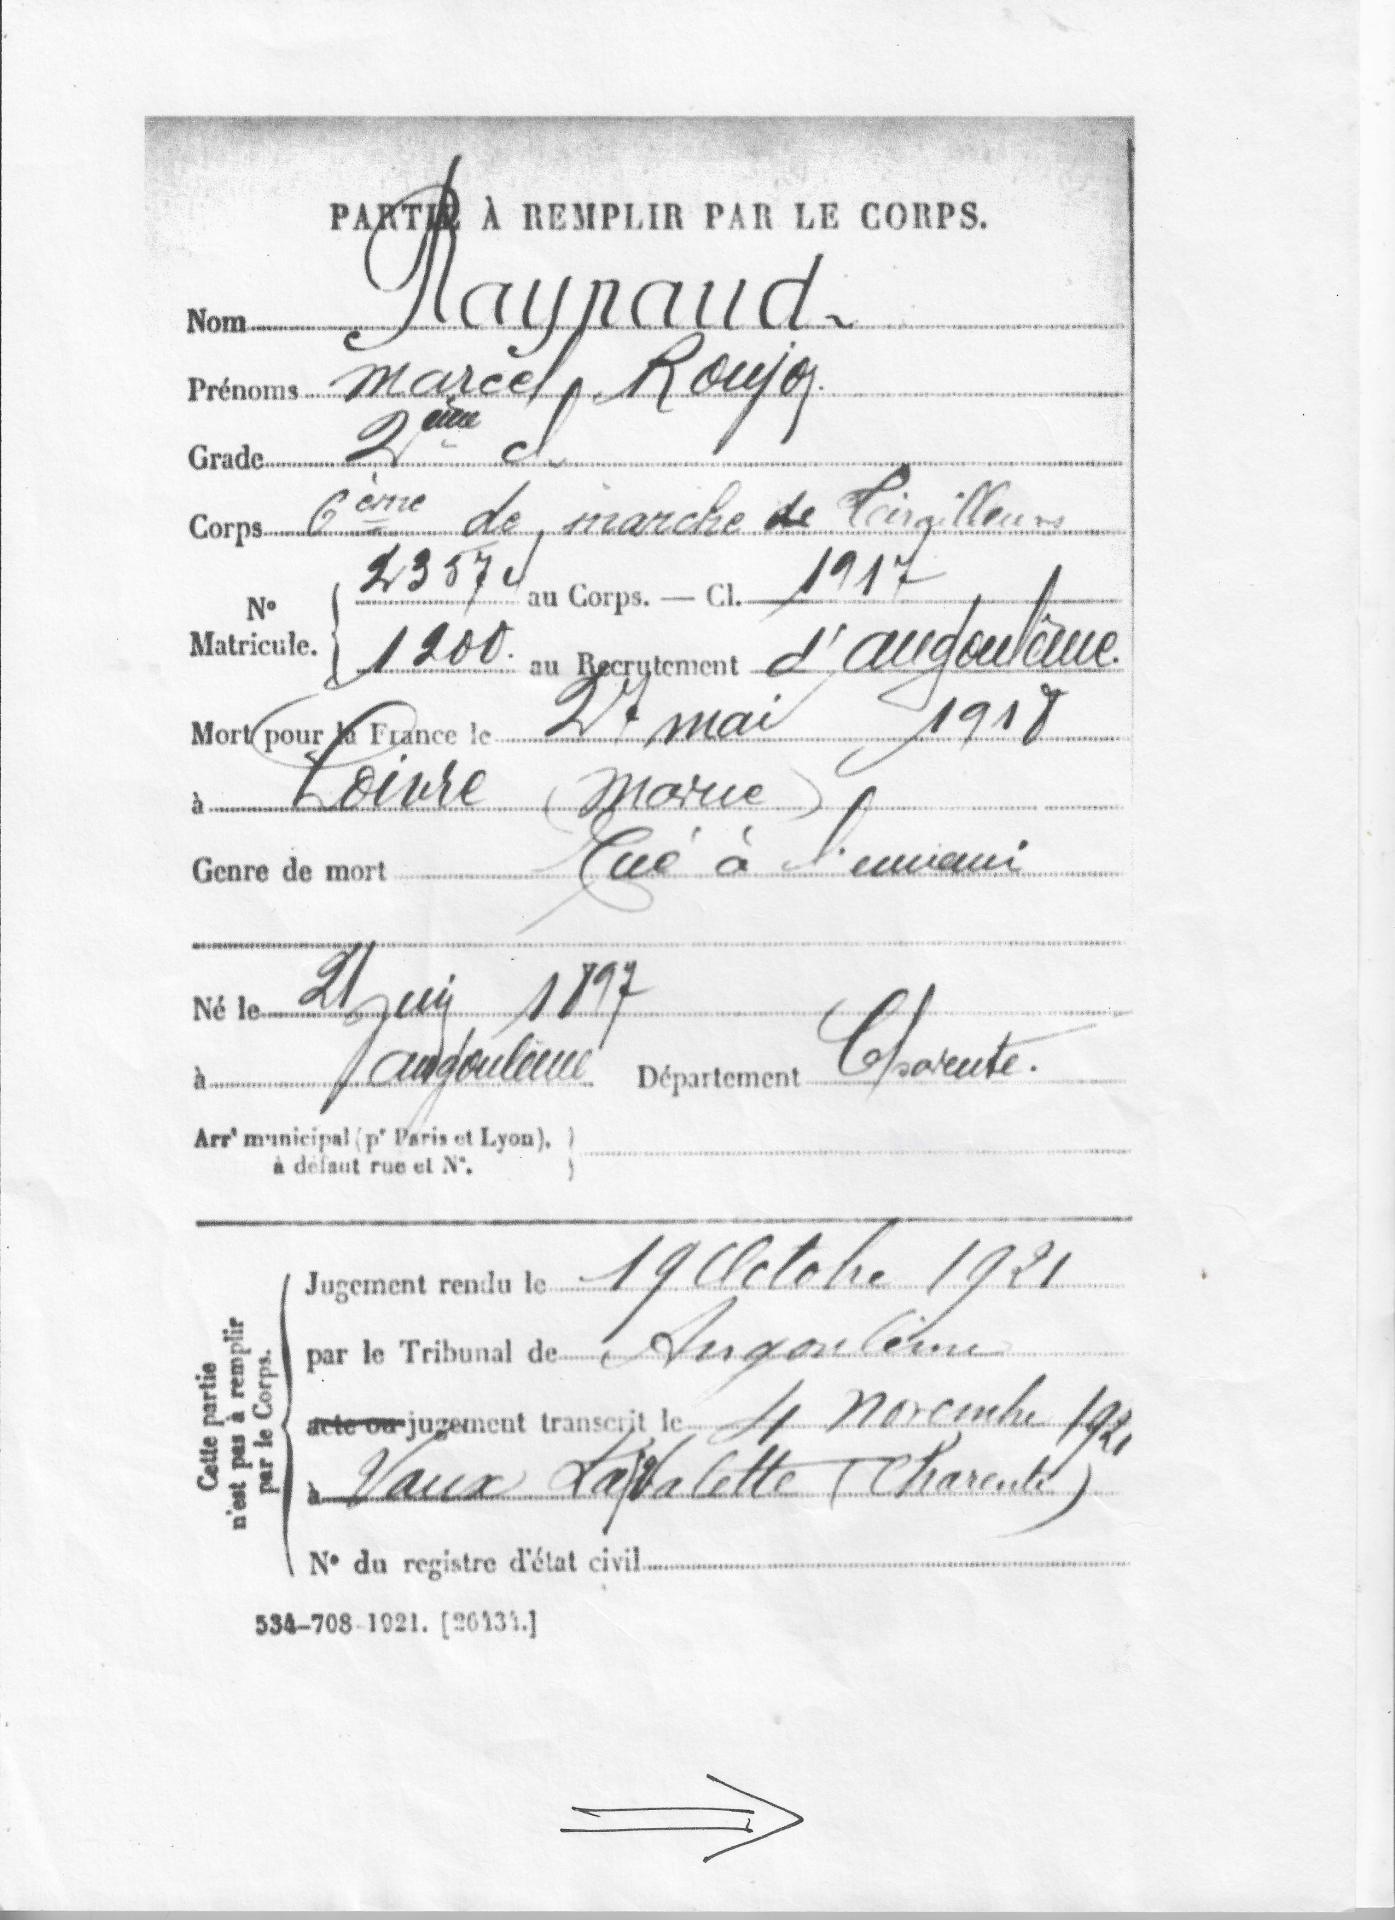 PARTIE À REMPLIR PAR LE CORPS.
Nom Raynaud
Prénoms Marcel, Roujo
Grade 2ème cl
Corps 6ème de marche de Tirailleurs
N° Matricule. 2357 au Corps. — Cl. 1917
1200. au Recrutement d'angoulême.
Mort pour la France le 27 mai 1918
à Loivre (Marne)
Genre de mort Tué à l'ennemi
Né le 21 juin 1897
à angoulême Département Charente.
Arrt municipal (pr Paris et Lyon),
à défaut rue et N°.
Cette partie
n'est pas à remplir
par le Corps.
Jugement rendu le 19 Octobre 1921
par le Tribunal de Angoulême
acte ou jugement transcrit le 4 novembre 1921
à Vaux Lavalette (Charente)
N° du registre d'état civil
534-708-1921. [26434.]